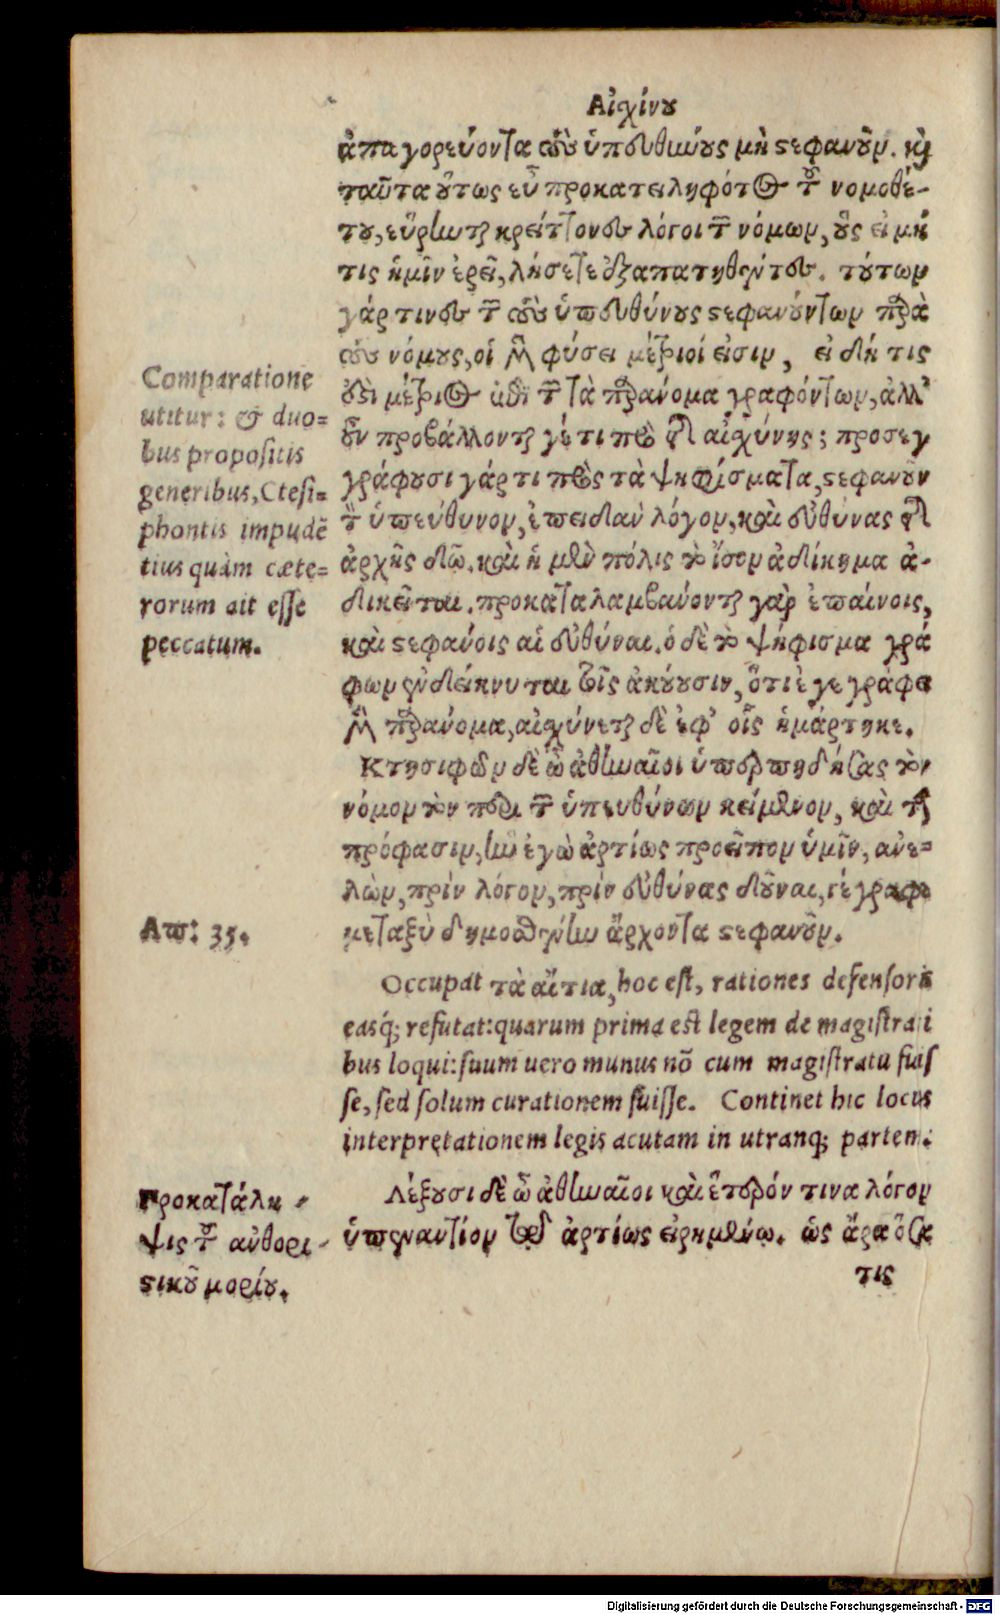 Αἰχίνου
ἀπαγορεύοντα τοὺς ὑπευθύνους μὴ στεφανοῦν. καὶ
ταῦτα οὕτως εὖ προκατειληφότος τοῦ νομοθέ-
του, εὕρηνται κρείττονες λόγοι τῶν νόμων, οὓς εἰ μή
τις ἡμῖν ἐρεῖ, λήσετε ἐξαπατηθέντες. τούτων
γάρ τινες τῶν τοὺς ὑπευθύνους στεφανούντων παρὰ
τοὺς νόμους, οἱ μὲν φύσει μέτριοί εἰσιν, εἰ δή τις
ἐστὶ μέτριος τῶν τὰ παράνομα γραφόντων, ἀλλ'
οὖν προβάλλονταί γέ τι πρὸ τῆς αἰχύνης; προσεγ
γράφουσι γάρ τι πρὸς τὰ ψηφίσματα, στεφανοῦν
τὸν ὑπεύθυνον, ἐπειδὰν λόγον, καὶ εὐθύνας τῆς
ἀρχῆς δῶ. καὶ ἡ μὲν πόλις τὸ ἴσον ἀδίκημα ἀ-
δικεῖται. προκαταλαμβάνονται γὰρ ἐπαίνοις,
καὶ στεφάνοις αἱ εὐθύναι. ὁ δὲ τὸ ψήφισμα γρά
φων ἐνδείκνυται τοῖς ἀκούουσιν, ὅτι ἐγεγράφει
μὲν παράνομα, αἰχύνεται δὲ ἐφ' οἷς ἡμάρτηκε.
Κτησιφῶν δὲ ὦ ἀθηναῖοι ὑπερπηδήσας τὸν
νόμον τὸν περὶ τῶν ὑπευθύνων κείμενον, καὶ τὴν
πρόφασιν, ἣν ἐγὼ ἀρτίως προεῖπον ὑμῖν, ἀνε-
λὼν, πρὶν λόγον, πρὶν εὐθύνας δοῦναι, γέγραφε
μεταξὺ δημοσθένην ἄρχοντα στεφανοῦν.
Comparatione
utitur: & duo=
bus propositis
generibus, Ctesi=
phontis impudē
tius quàm cæte=
rorum ait esse
peccatum.
Απ: 35.
Occupat τὰ αἴτια, hoc est, rationes defensoris
easq́; refutat: quarum prima est legem de magistrati
bus loqui: suum uero munus nō cum magistratu fuis
se, sed solum curationem fuisse. Continet hic locus
interpretationem legis acutam in utranq; partem.
Λέξουσι δὲ ὦ ἀθηναῖοι καὶ ἕτερόν τινα λόγον
ὑπεναντίον τοῖς ἀρτίως εἰρημένοις. ὡς ἄρα ὅσα
τις
Προκατάλη-
ψις τοῦ αὐθορι-
στικοῦ μορίου.
Digitalisierung gefördert durch die Deutsche Forschungsgemeinschaft - DFG